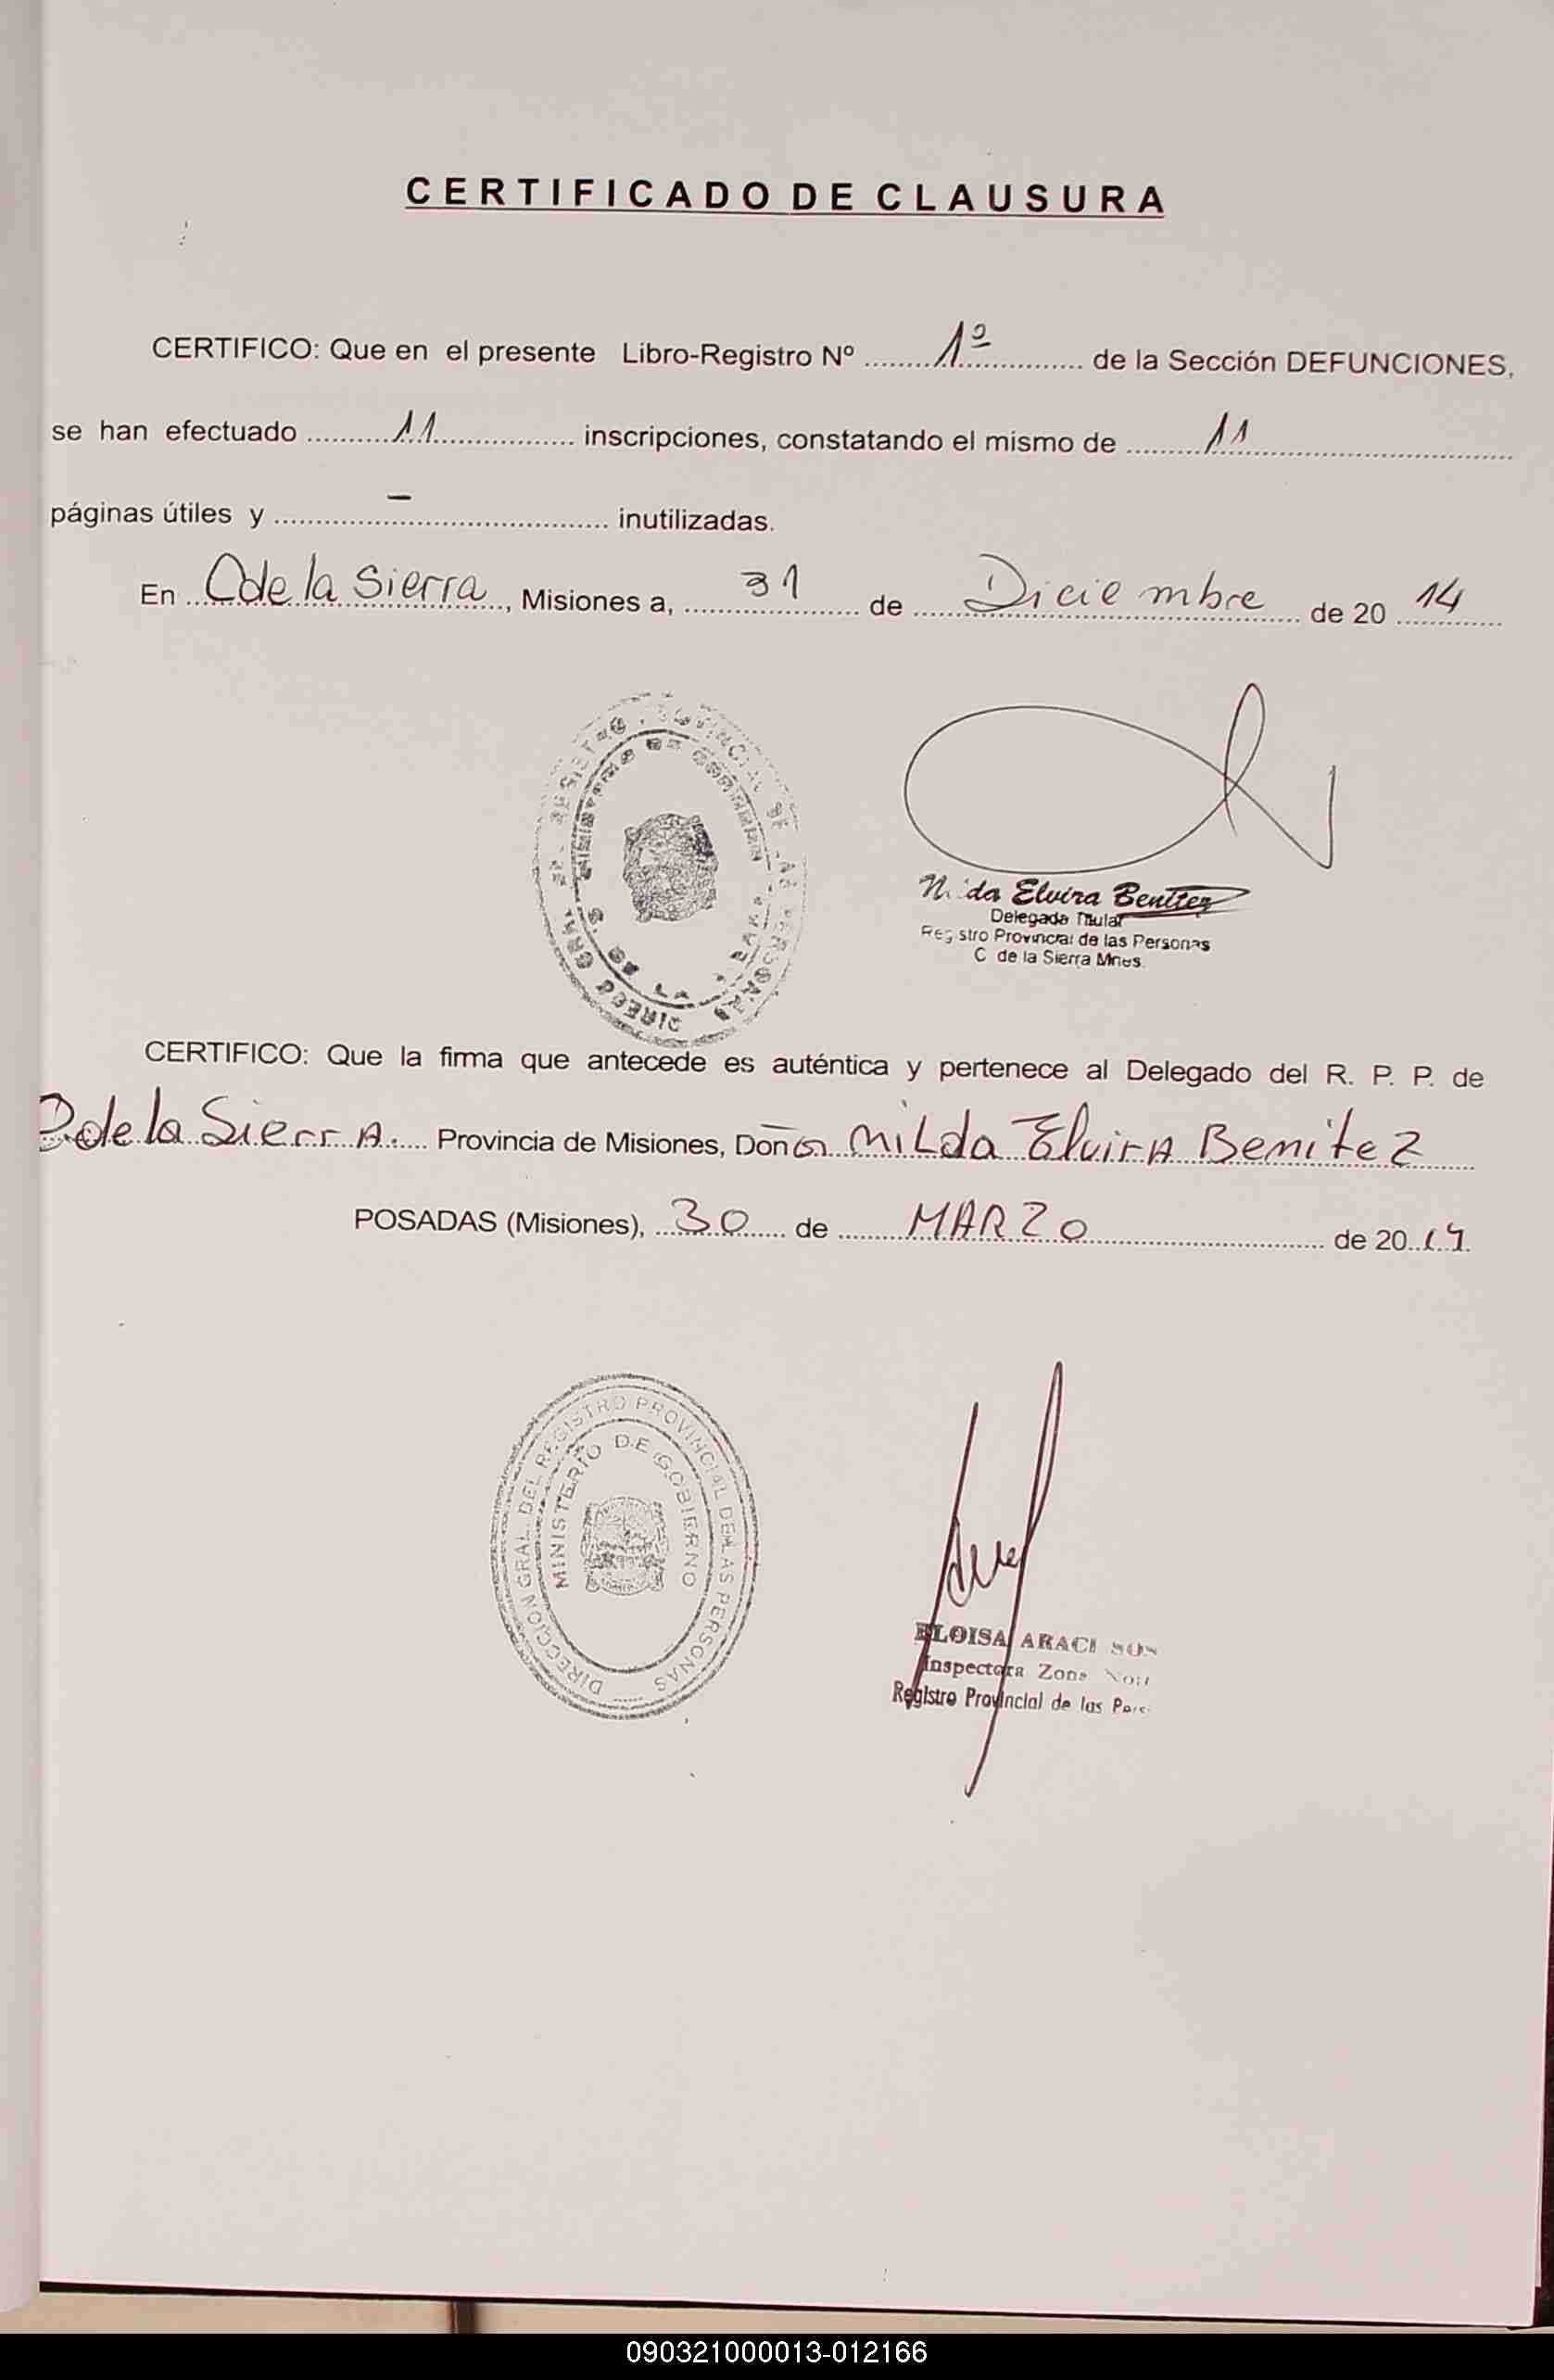 CERTIFICADO DE CLAUSURA
CERTIFICO: Que en el presente Libro-Registro Nº 1º de la Sección DEFUNCIONES,
se han efectuado 11 inscripciones, constatando el mismo de 11
páginas útiles y - inutilizadas.
En C de la Sierra, Misiones a, 31 de Diciembre de 20 14
DIRECC GRAL. DEL REGISTRO PROVINCIAL DE LAS PERSONAS
MINISTERIO DE GOBIERNO
C. DE LA
N. da Elvira Benitez
Delegada Titular
Reg stro Provincial de las Personas
C de la Sierra Mnes.
CERTIFICO: Que la firma que antecede es auténtica y pertenece al Delegado del R. P. P. de
C de la SierrA. Provincia de Misiones, Doña NiLda ElvirA Benitez
POSADAS (Misiones), 30 de MARZO de 20
DIRECCION GRAL. DEL REGISTRO PROVINCIAL DE LAS PERSONAS
MINISTERIO DE GOBIERNO
ELOISA ARACI
Inspectora Zona
Registro Provincial de las Pers
090321000013-012166